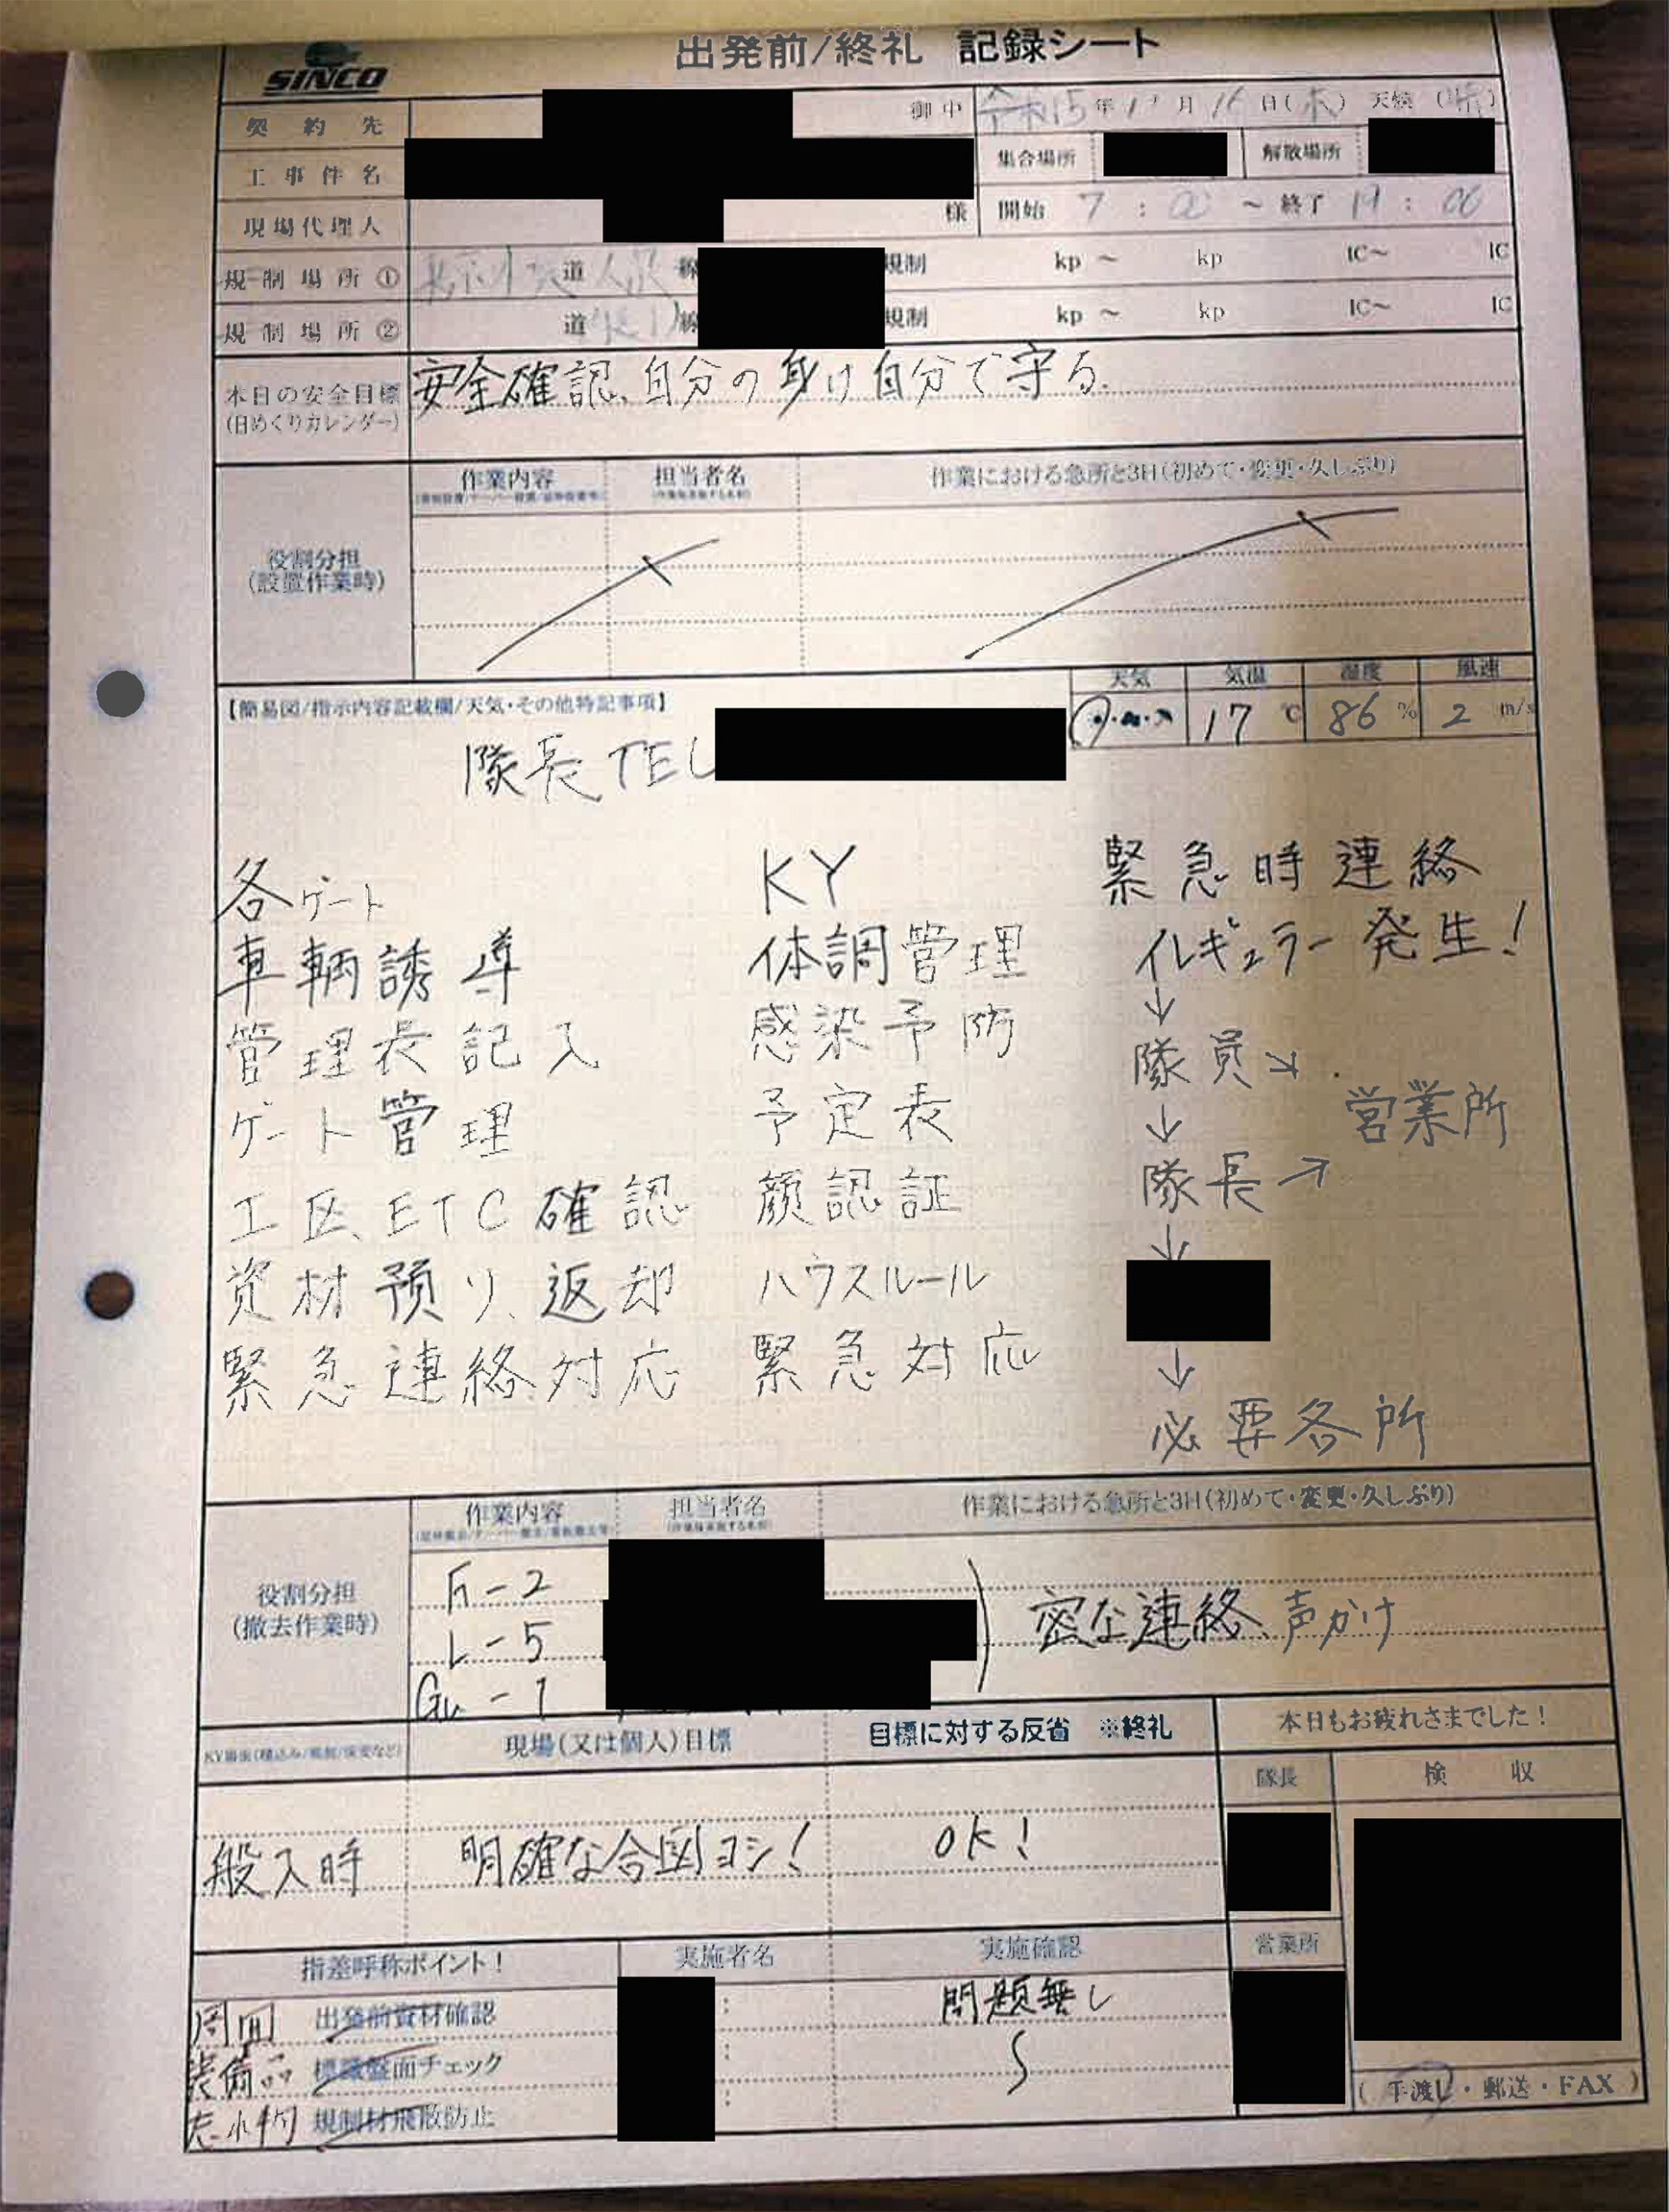 出発前/終礼 記録シート
SINCO
契約先 御中 令和5年 月16日(木) 天候(晴)
工事件名 集合場所 解散場所
現場代理人 様 開始 7:00 ~ 終了 19:00
規制場所① 道 線 規制 kp ~ kp IC~ IC
規制場所② 道 線 規制 kp ~ kp IC~ IC
本日の安全目標 安全確認、自分の身は自分で守る。
(日めくりカレンダー)
作業内容 担当者名 作業における急所と3H(初めて・変更・久しぶり)
役割分担
(設置作業時)
【簡易図/指示内容記載欄/天気・その他特記事項】 天気 気温 湿度 風速
17℃ 86% 2m/s
隊長TEL
各ゲート
車輌誘導
管理表記入
ゲート管理
工区、ETC確認
資材預り、返却
緊急連絡対応
KY
体調管理
感染予防
予定表
顔認証
ハウスルール
緊急対応
緊急時連絡
イレギュラー発生!
↓
隊員↘
↓ 営業所
隊長↗
↓
↓
必要各所
作業内容 担当者名 作業における急所と3H(初めて・変更・久しぶり)
役割分担
(撤去作業時)
-2
L-5 密な連絡、声かけ
-1
現場(又は個人)目標 目標に対する反省 ※終礼 本日もお疲れさまでした!
隊長 検収
般入時 明確な合図ヨシ! OK!
指差呼称ポイント! 実施者名 実施確認 営業所
周囲 出発前資材確認 : 問題無し
装備品 標識盤面チェック :
忘れ物 規制材飛散防止
(手渡し・郵送・FAX)